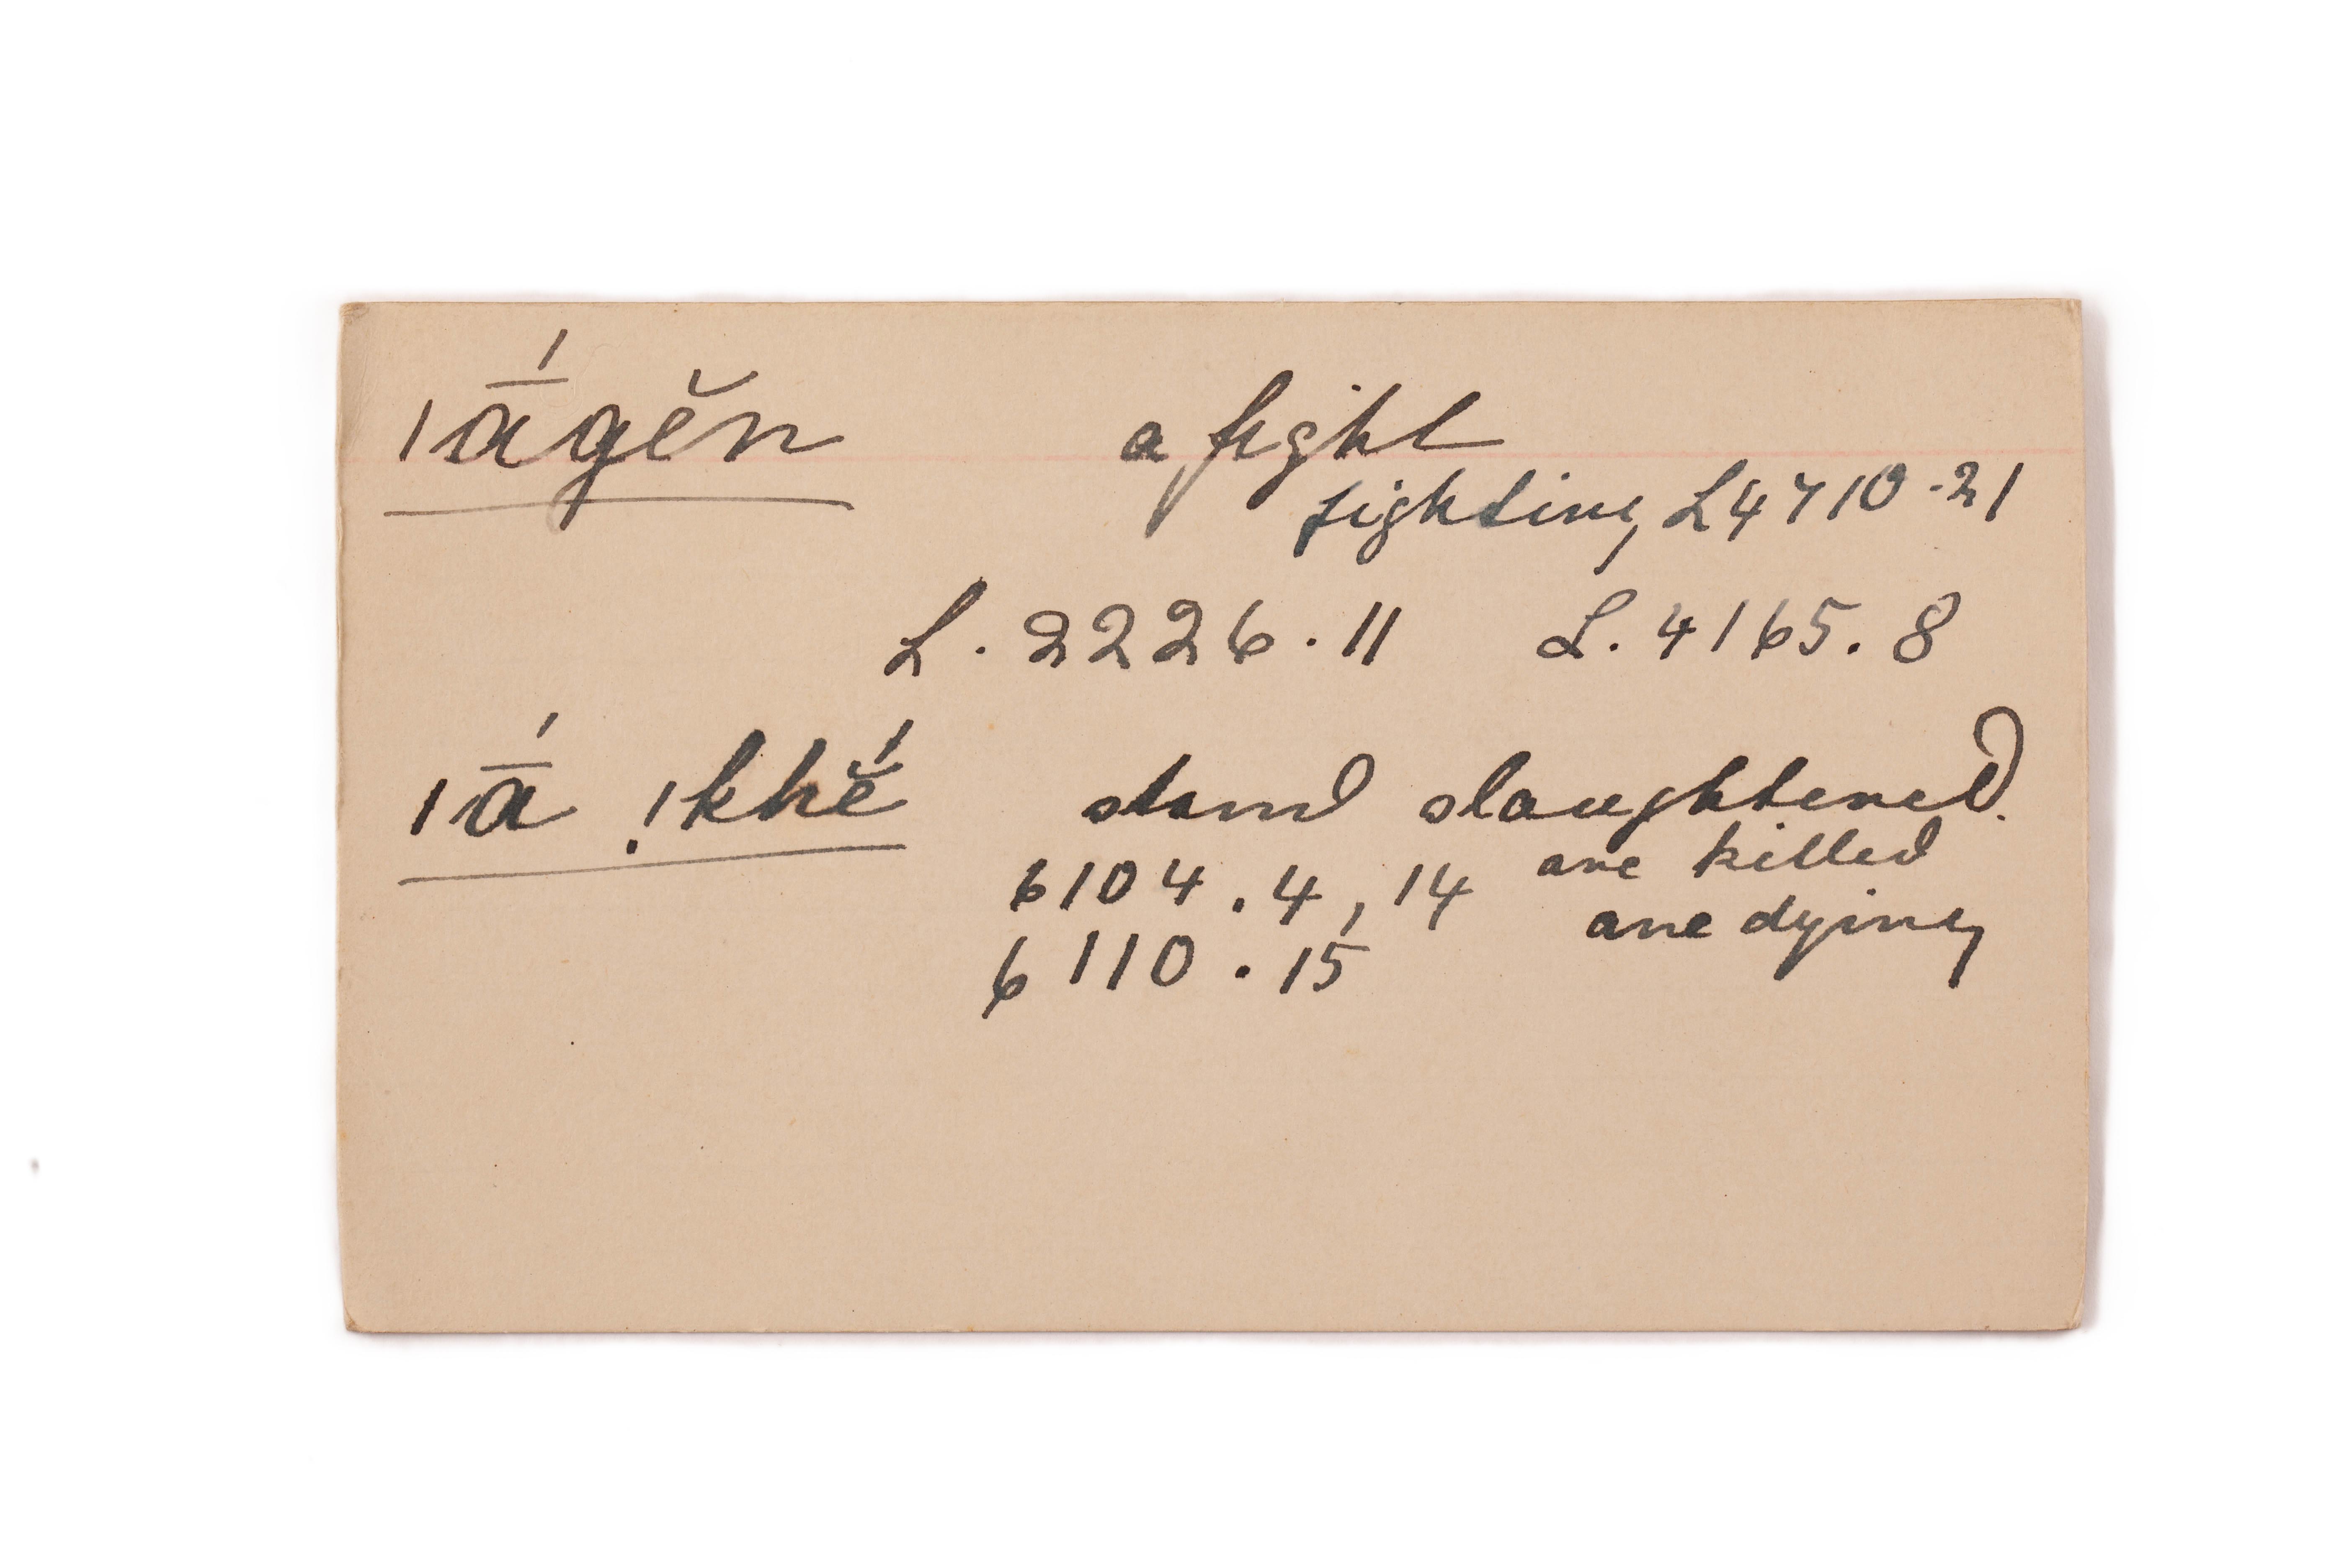 ǀā́gĕn a fight
fighting L 4710.21
L. 2226.11 L. 4165.8
ǀā́ !khĕ́ stand slaughtered.
6104.4,14 are killed
are dying
6110.15